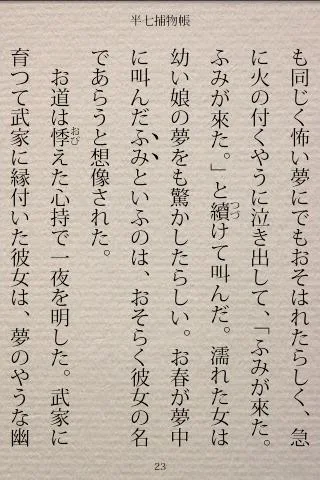 半七捕物帳
も同じく怖い夢にでもおそはれたらしく、急
に火の付くやうに泣き出して、「ふみが來た。
ふみが來た。」と續けて叫んだ。濡れた女は
つづ
幼い娘の夢をも驚かしたらしい。お春が夢中
に叫んだふみといふのは、おそらく彼女の名
であらうと想像された。
お道は悸えた心持で一夜を明した。武家に
おび
育つて武家に縁付いた彼女は、夢のやうな幽
23